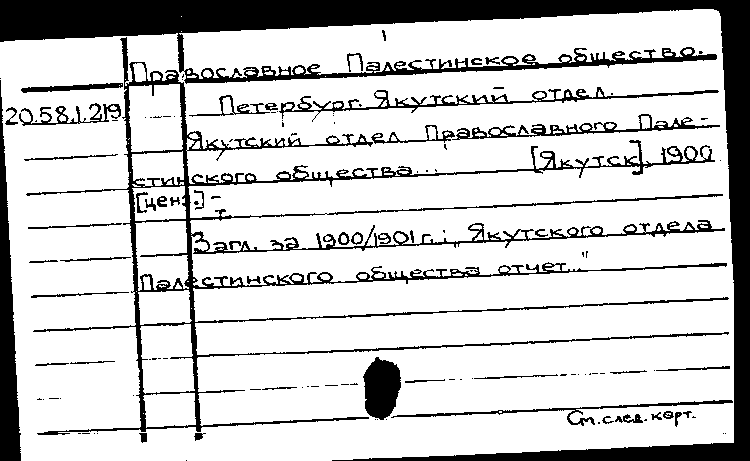 1
Православное Палестинское общество.
20.58.1.219 Петербург. Якутский отдел.
Якутский отдел Православного Пале-
стинского общества... [Якутск], 1900
[ценз.] -
т.
Загл. за 1900/1901 г.: „Якутского отдела
Палестинского общества отчет..."
См. след. карт.